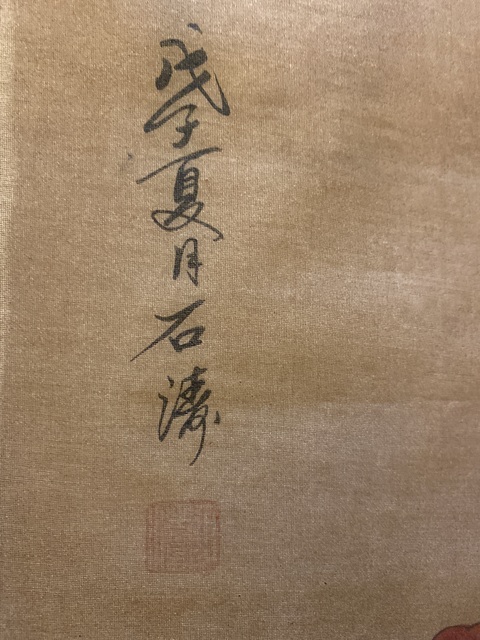 戊子夏月石濤